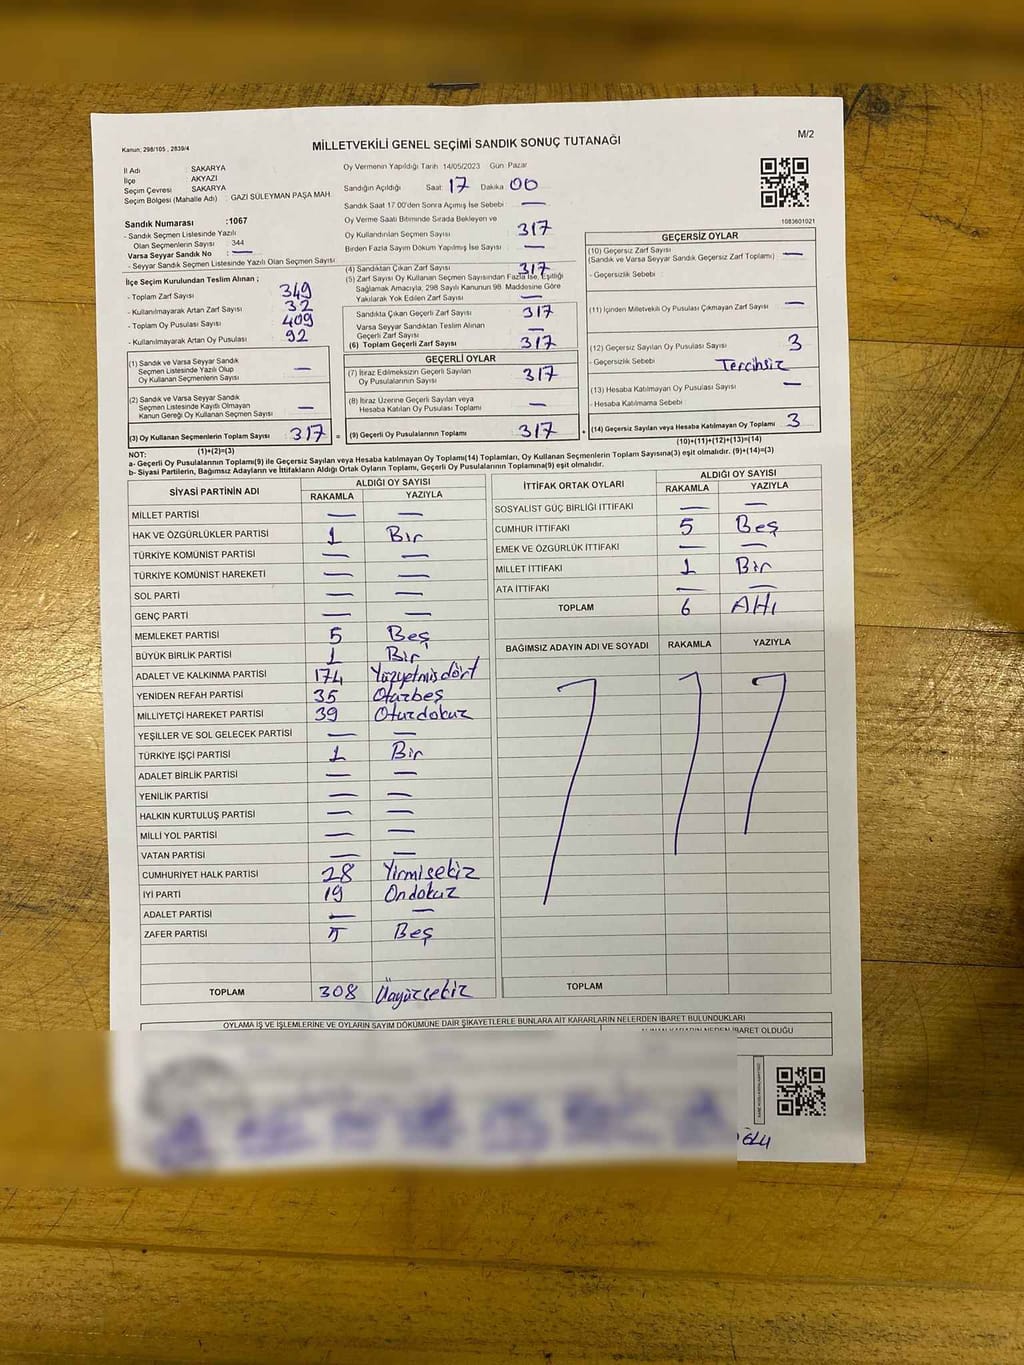 Kanun: 298/105 , 2839/4
MİLLETVEKİLİ GENEL SEÇİMİ SANDIK SONUÇ TUTANAĞI
M/2
İl Adı : SAKARYA
İlçe : AKYAZI
Seçim Çevresi : SAKARYA
Seçim Bölgesi (Mahalle Adı) : GAZİ SÜLEYMAN PAŞA MAH.
Sandık Numarası :1067
- Sandık Seçmen Listesinde Yazılı
Olan Seçmenlerin Sayısı 344
Varsa Seyyar Sandık No : —
- Seyyar Sandık Seçmen Listesinde Yazılı Olan Seçmen Sayısı
Oy Vermenin Yapıldığı Tarih 14/05/2023 Gün Pazar
Sandığın Açıldığı Saat: 17 Dakika 00
Sandık Saat 17:00'den Sonra Açımış İse Sebebi —
Oy Verme Saati Bitiminde Sırada Bekleyen ve
Oy Kullandırılan Seçmen Sayısı 317
Birden Fazla Sayım Döküm Yapılmış İse Sayısı —
1083601021
İlçe Seçim Kurulundan Teslim Alınan ;
- Toplam Zarf Sayısı 349
- Kullanılmayarak Artan Zarf Sayısı 32
- Toplam Oy Pusulası Sayısı 409
- Kullanılmayarak Artan Oy Pusulası 92
(1) Sandık ve Varsa Seyyar Sandık
Seçmen Listesinde Yazılı Olup
Oy Kullanan Seçmenlerin Sayısı —
(2) Sandık ve Varsa Seyyar Sandık
Seçmen Listesinde Kayıtlı Olmayan
Kanun Gereği Oy Kullanan Seçmen Sayısı —
(3) Oy Kullanan Seçmenlerin Toplam Sayısı 317
(1)+(2)=(3)
(4) Sandıktan Çıkan Zarf Sayısı 317
(5) Zarf Sayısı Oy Kullanan Seçmen Sayısından Fazla İse, Eşitliği
Sağlamak Amacıyla, 298 Sayılı Kanunun 98. Maddesine Göre
Yakılarak Yok Edilen Zarf Sayısı —
Sandıkta Çıkan Geçerli Zarf Sayısı 317
Varsa Seyyar Sandıktan Teslim Alınan
Geçerli Zarf Sayısı —
(6) Toplam Geçerli Zarf Sayısı 317
GEÇERLİ OYLAR
(7) İtiraz Edilmeksizin Geçerli Sayılan
Oy Pusulalarının Sayısı 317
(8) İtiraz Üzerine Geçerli Sayılan veya
Hesaba Katılan Oy Pusulası Toplamı —
= (9) Geçerli Oy Pusulalarının Toplamı 317
GEÇERSİZ OYLAR
(10) Geçersiz Zarf Sayısı
(Sandık ve Varsa Seyyar Sandık Geçersiz Zarf Toplamı) —
- Geçersizlik Sebebi :
(11) İçinden Milletvekili Oy Pusulası Çıkmayan Zarf Sayısı —
(12) Geçersiz Sayılan Oy Pusulası Sayısı 3
- Geçersizlik Sebebi Tercihsiz
(13) Hesaba Katılmayan Oy Pusulası Sayısı —
- Hesaba Katılmama Sebebi
+ (14) Geçersiz Sayılan veya Hesaba Katılmayan Oy Toplamı 3
(10)+(11)+(12)+(13)=(14)
NOT:
a- Geçerli Oy Pusulalarının Toplamı(9) ile Geçersiz Sayılan veya Hesaba Katılmayan Oy Toplamı(14) Toplamları, Oy Kullanan Seçmenlerin Toplam Sayısına(3) eşit olmalıdır. (9)+(14)=(3)
b- Siyasi Partilerin, Bağımsız Adayların ve İttifakların Aldığı Ortak Oyların Toplamı, Geçerli Oy Pusulalarının Toplamına(9) eşit olmalıdır.
SİYASİ PARTİNİN ADI ALDIĞI OY SAYISI
RAKAMLA YAZIYLA
MİLLET PARTİSİ — —
HAK VE ÖZGÜRLÜKLER PARTİSİ 1 Bir
TÜRKİYE KOMÜNİST PARTİSİ — —
TÜRKİYE KOMÜNİST HAREKETİ — —
SOL PARTİ — —
GENÇ PARTİ — —
MEMLEKET PARTİSİ 5 Beş
BÜYÜK BİRLİK PARTİSİ 1 Bir
ADALET VE KALKINMA PARTİSİ 174 Yüzyetmişdört
YENİDEN REFAH PARTİSİ 35 Otuzbeş
MİLLİYETÇİ HAREKET PARTİSİ 39 Otuzdokuz
YEŞİLLER VE SOL GELECEK PARTİSİ — —
TÜRKİYE İŞÇİ PARTİSİ 1 Bir
ADALET BİRLİK PARTİSİ — —
YENİLİK PARTİSİ — —
HALKIN KURTULUŞ PARTİSİ — —
MİLLİ YOL PARTİSİ — —
VATAN PARTİSİ — —
CUMHURİYET HALK PARTİSİ 28 Yirmisekiz
İYİ PARTİ 19 Ondokuz
ADALET PARTİSİ — —
ZAFER PARTİSİ 5 Beş
TOPLAM 308 Üçyüzsekiz
İTTİFAK ORTAK OYLARI ALDIĞI OY SAYISI
RAKAMLA YAZIYLA
SOSYALİST GÜÇ BİRLİĞİ İTTİFAKI — —
CUMHUR İTTİFAKI 5 Beş
EMEK VE ÖZGÜRLÜK İTTİFAKI — —
MİLLET İTTİFAKI 1 Bir
ATA İTTİFAKI — —
TOPLAM 6 Altı
BAĞIMSIZ ADAYIN ADI VE SOYADI RAKAMLA YAZIYLA
TOPLAM
OYLAMA İŞ VE İŞLEMLERİNE VE OYLARIN SAYIM DÖKÜMÜNE DAİR ŞİKAYETLERLE BUNLARA AİT KARARLARIN NELERDEN İBARET BULUNDUKLARI
ALINAN KARARIN NEDEN İBARET OLDUĞU